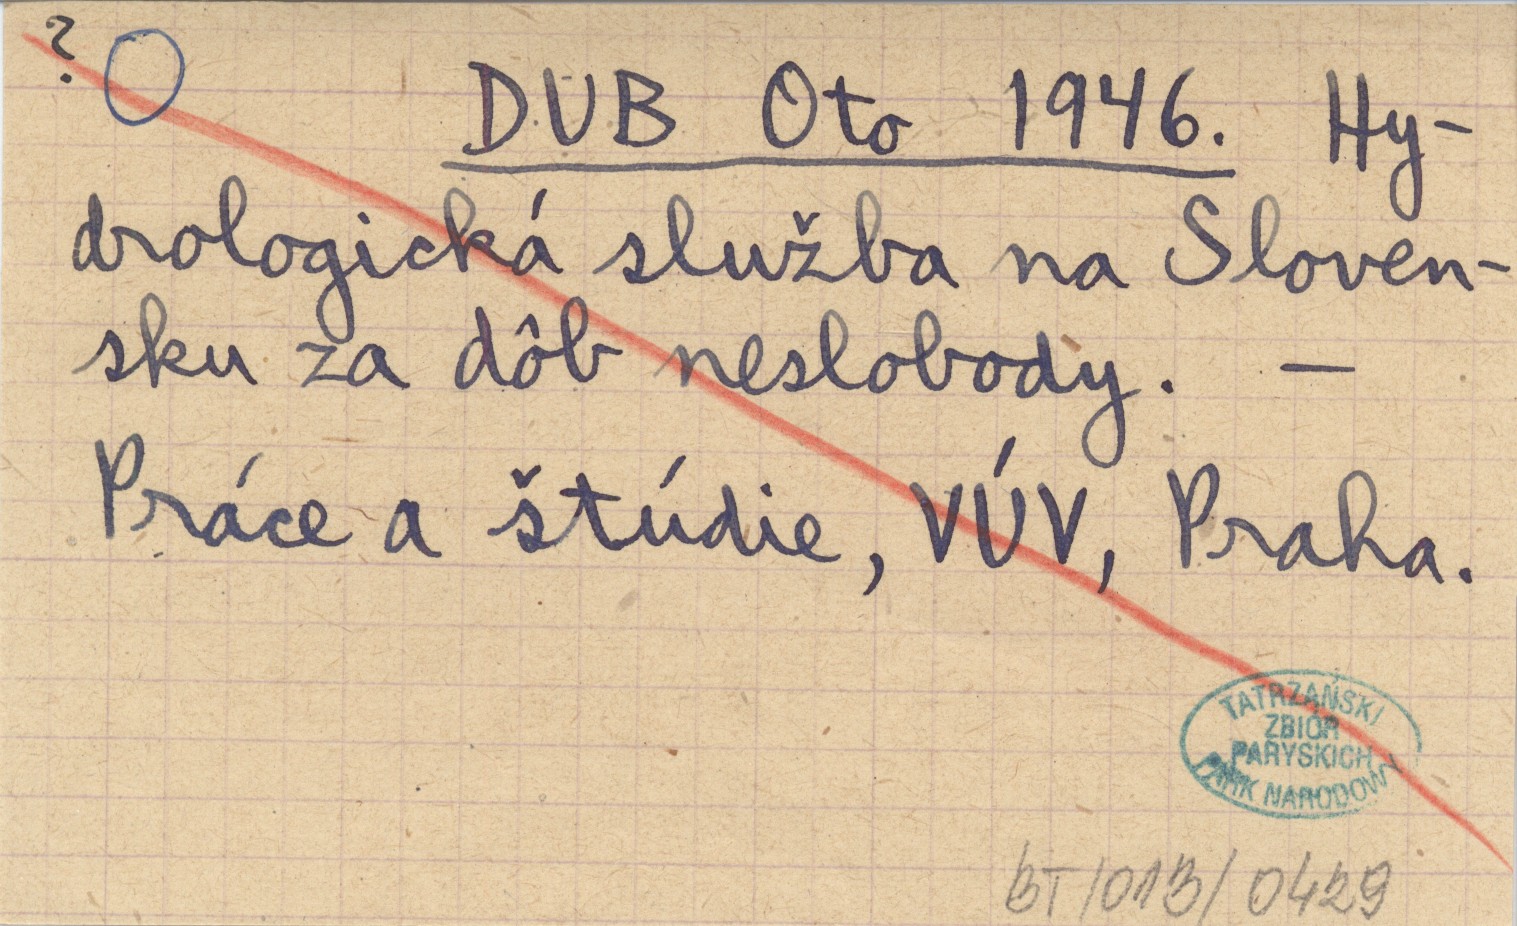 ?
DUB Oto 1946. Hy-
drologická služba na Sloven-
sku za dôb neslobody. —
Práce a štúdie, VÚV, Praha.
TATRZAŃSKI
ZBIÓR
PARYSKICH
PARK NARODOWY
BT/013/0429